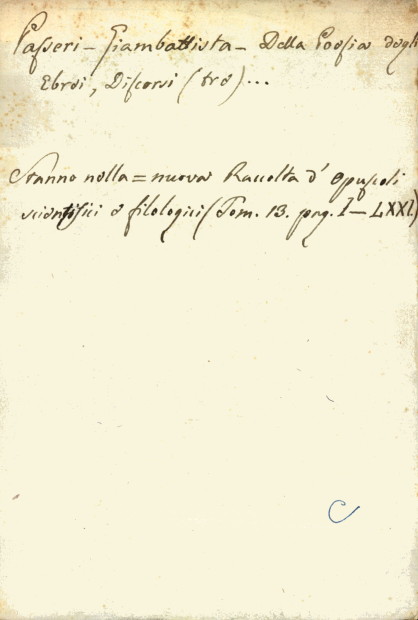 Passeri - Giambattista - Della Poesia degli
Ebrei, Discorsi (tre)...
Stanno nella = nuova Raccolta d' opuscoli
scientifici e filologici (Tom. 13. pag. I - LXXI.)
C